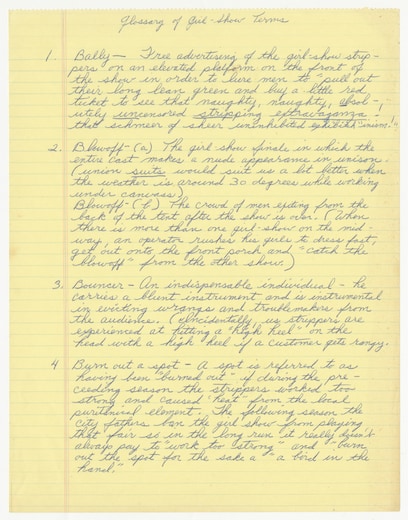 Glossary of Girl-Show Terms
1. Bally — Free advertising of the girl-show strip-
pers on an elevated platform on the front of
the show in order to lure men to "pull out
their long lean green and buy a little red
ticket to see that naughty, naughty, absol-
utely uncensored stripping extravaganza -
that schmeer of sheer uninhibited exhibitionism!"
2. Blowoff - (a) The girl show finale in which the
entire cast makes a nude appearance in unison.
(union suits would suit us a lot better when
the weather is around 30 degrees while working
under canvas.)
Blowoff - (b) The crowd of men exiting from the
back of the tent after the show is over. (When
there is more than one girl-show on the mid-
way, an operator rushes his girls to dress fast,
get out onto the front porch and "catch the
blowoff" from the other show.)
3. Bouncer - An indispensable individual - he
carries a blunt instrument and is instrumental
in evicting wrangs and troublemakers from
the audience. Coincidentally, us strippers are
experienced at hitting a "high heel" on the
head with a high heel if a customer gets rangy.
4 Burn out a spot - A spot is referred to as
having been "burned out" if during the pre-
ceeding season the strippers worked too
strong and caused "heat" from the local
puritanical element. The following season the
city fathers ban the girl show from playing
that fair so in the long run it really doesn't
always pay to "work too strong" and "burn
out the spot for the sake a "a bird in the
hand."